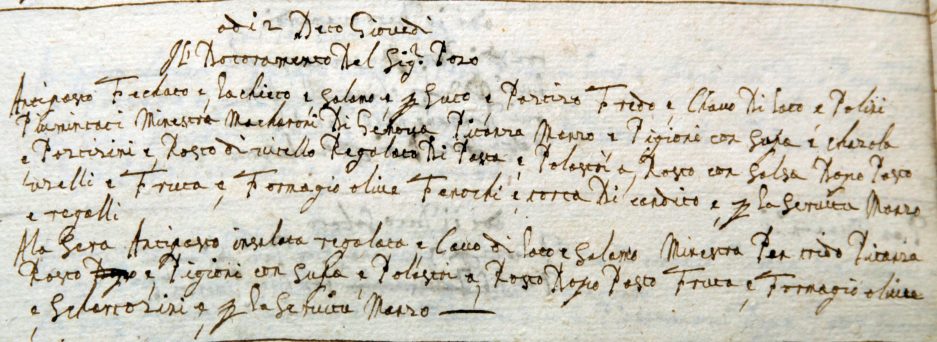 adi 2 Deto Giovedi
Il Dotoramento Del Sig.r Pozo
Antipasto Fechato e, lachieto e, Salamo, e, Suco e Porzino Fredo e Cluvo Di lato e Polisi
Piamintaci Minestra Macharoni Di Genova Pitanza Manzo e Pigioni con Supa e
e Porcirini e, Rosto di vitello Regalato Di Pasta e, Polastri a, Rosto con Salsa Dopo Pasto
e Fruta e, Formagio olive Fenochi e, torta Di candito e, p la Servitu Manzo
e regalli
Ala Sera Antipasto insalata regalata e Cavo di lato e Salamo Minestra Pan trido Pitanza
Rosto e, Pigioni con Supa e Polastri a, Rosto Dopo Pasto Fruta e, Formagio olive
e, e, p la Servitu Manzo